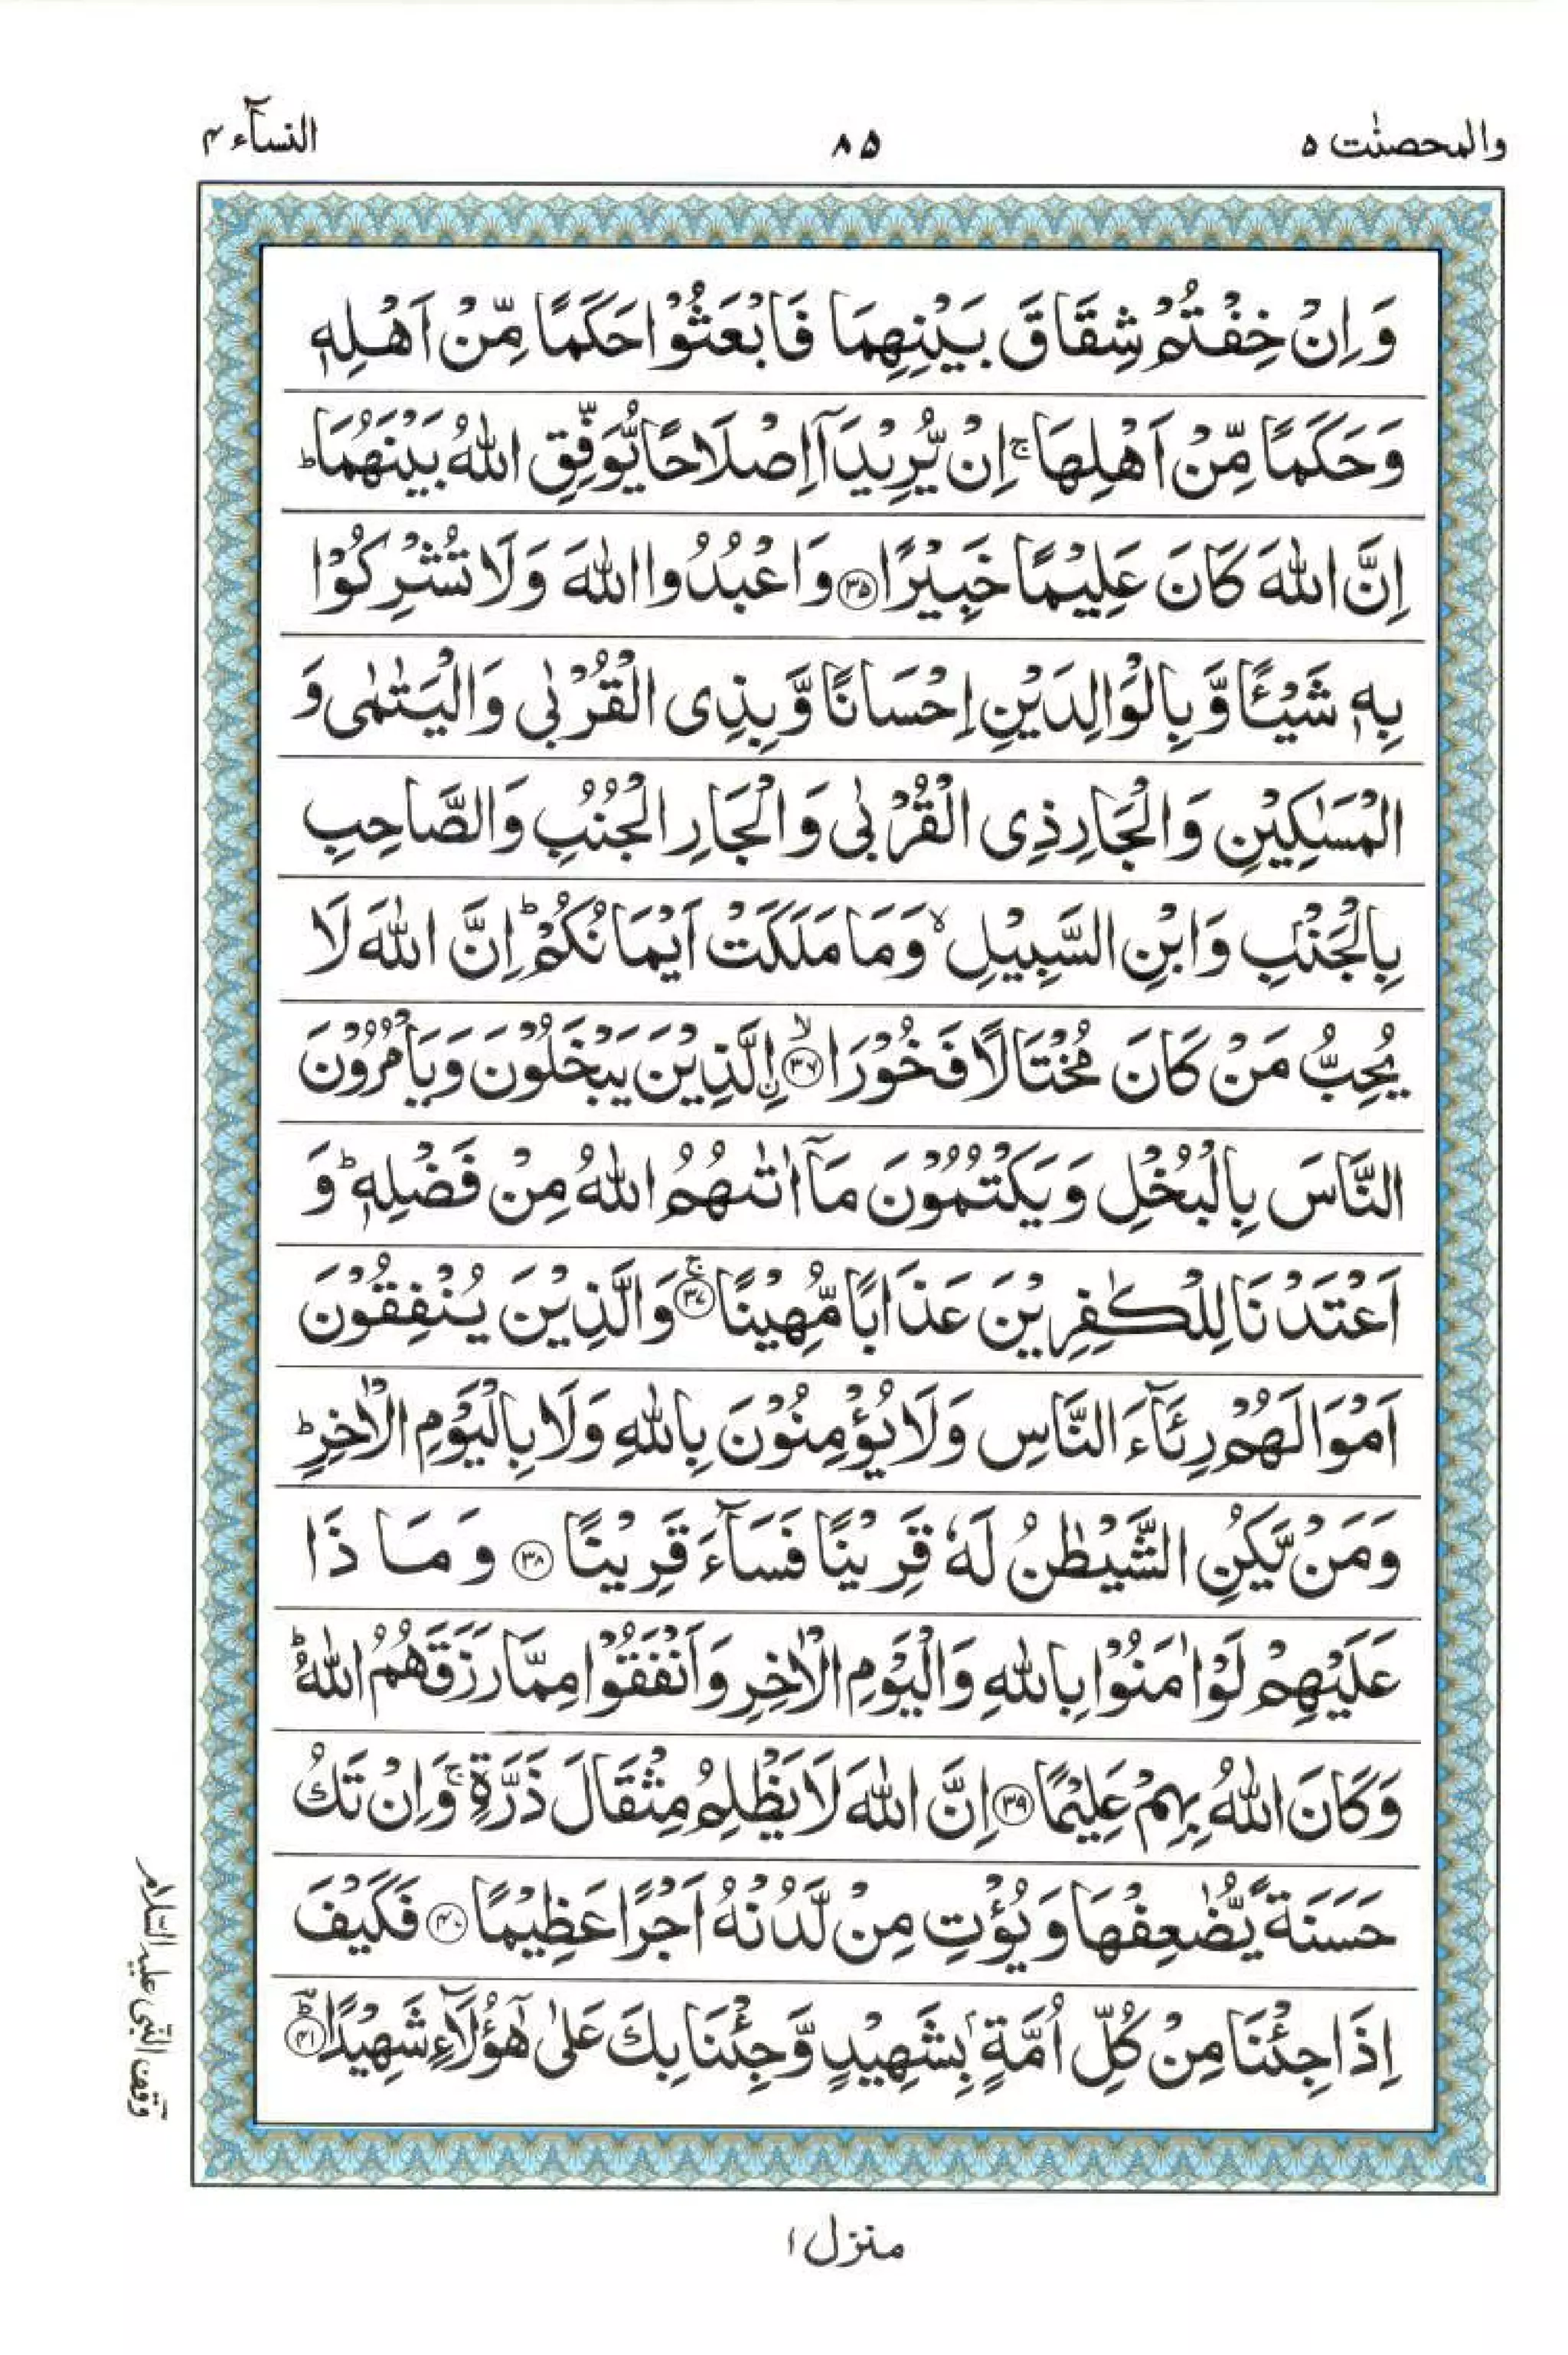 والمحصنٰت ۵ ۸۵ النسآء ۴
وَ اِنْ خِفْتُمْ شِقَاقَ بَيْنِهِمَا فَابْعَثُوْا حَكَمًا مِّنْ اَهْلِهٖ
وَحَكَمًا مِّنْ اَهْلِهَا ۚ اِنْ يُّرِيْدَآ اِصْلَاحًا يُّوَفِّقِ اللّٰهُ بَيْنَهُمَا ؕ
اِنَّ اللّٰهَ كَانَ عَلِيْمًا خَبِيْرًا ﴿۳۵﴾ وَاعْبُدُوا اللّٰهَ وَلَا تُشْرِكُوْا
بِهٖ شَيْـًٔا وَّبِالْوَالِدَيْنِ اِحْسَانًا وَّبِذِى الْقُرْبٰى وَالْيَتٰمٰى وَ
الْمَسٰكِيْنِ وَالْجَارِ ذِى الْقُرْبٰى وَالْجَارِ الْجُنُبِ وَالصَّاحِبِ
بِالْجَنْۢبِ وَابْنِ السَّبِيْلِ ۙ وَمَا مَلَكَتْ اَيْمَانُكُمْ ؕ اِنَّ اللّٰهَ لَا
يُحِبُّ مَنْ كَانَ مُخْتَالًا فَخُوْرَا ﴿۳۶﴾ ۙ اِۨلَّذِيْنَ يَبْخَلُوْنَ وَيَاْمُرُوْنَ
النَّاسَ بِالْبُخْلِ وَيَكْتُمُوْنَ مَآ اٰتٰىهُمُ اللّٰهُ مِنْ فَضْلِهٖ ؕ وَ
اَعْتَدْنَا لِلْكٰفِرِيْنَ عَذَابًا مُّهِيْنًا ﴿۳۷﴾ ۚ وَالَّذِيْنَ يُنْفِقُوْنَ
اَمْوَالَهُمْ رِئَآءَ النَّاسِ وَلَا يُؤْمِنُوْنَ بِاللّٰهِ وَلَا بِالْيَوْمِ الْاٰخِرِ ؕ
وَمَنْ يَّكُنِ الشَّيْطٰنُ لَهٗ قَرِيْنًا فَسَآءَ قَرِيْنًا ﴿۳۸﴾ وَمَاذَا
عَلَيْهِمْ لَوْ اٰمَنُوْا بِاللّٰهِ وَالْيَوْمِ الْاٰخِرِ وَاَنْفَقُوْا مِمَّا رَزَقَهُمُ اللّٰهُ ؕ
وَكَانَ اللّٰهُ بِهِمْ عَلِيْمًا ﴿۳۹﴾ اِنَّ اللّٰهَ لَا يَظْلِمُ مِثْقَالَ ذَرَّةٍ ۚ وَاِنْ تَكُ
حَسَنَةً يُّضٰعِفْهَا وَيُؤْتِ مِنْ لَّدُنْهُ اَجْرًا عَظِيْمًا ﴿۴۰﴾ فَكَيْفَ
اِذَا جِئْنَا مِنْ كُلِّ اُمَّةٍۭ بِشَهِيْدٍ وَّجِئْنَا بِكَ عَلٰى هٰٓؤُلَآءِ شَهِيْدًا ﴿۴۱﴾ ؕ
وقف النبی علیہ السلام
منزل ۱